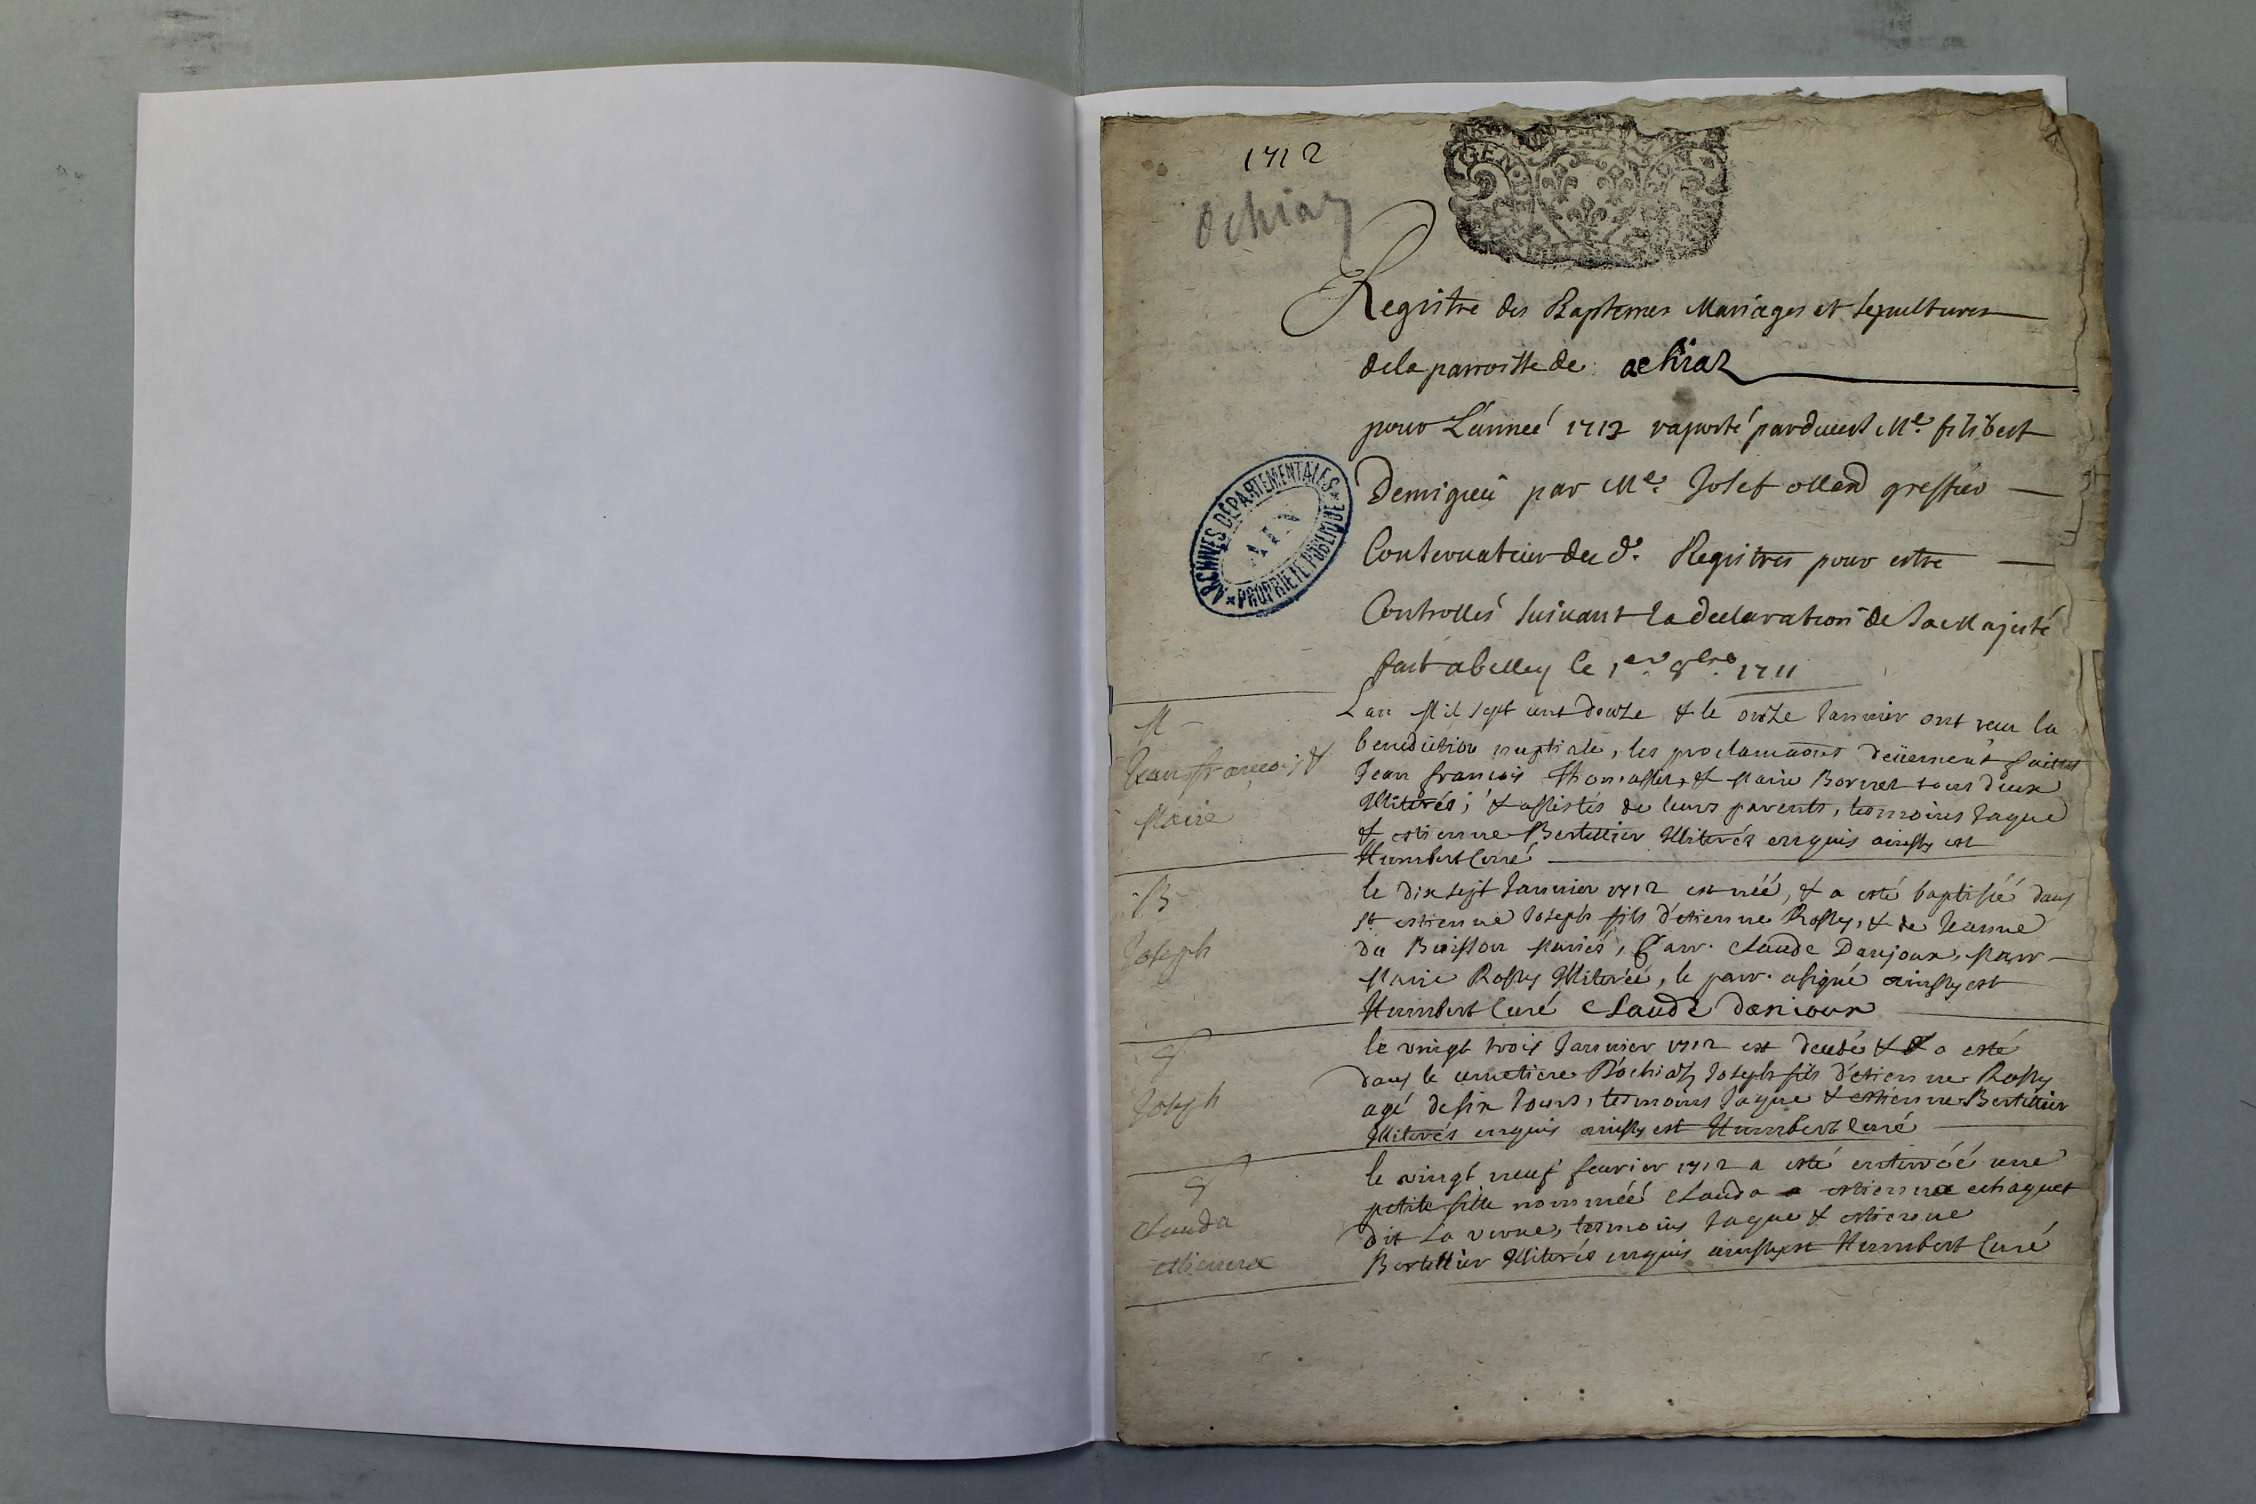 1712
Ochiaz
GEN
Registre des Baptemes Mariages et sepultures
de la parroisse de ochiaz
pour L'année 1712 raporté par devent Me. filibert
Demigieu par Me. Josef olland greffier
ARCHIVES DÉPARTEMENTALES
AIN
PROPRIÉTÉ PUBLIQUE
Conservateur des d. Registres pour estre
Controllés suivant la declaration de sa Majesté
fait a belley le 1er 8bre 1711
M
Jean françois &
Marie
Lan Mil sept cent douze & le onze Janvier ont receu la
benediction nuptiale, les proclamaons deüement faittes
Jean françois & Marie Bornet tous deux
Illiterés; & assistés de leurs parents, tesmoins Jaque
& estienne Bertellier Illiterés enquis ainssy est
Humbert Curé
B
Joseph
le dix sept Janvier 1712 est néé, & a esté baptisé dans
st estienne Joseph fils d'etienne Rossy, & de Jeanne
du Buisson Mariés, Parr. Claude Danjoux, Marr
Marie Rossy Illiteréé, le parr. asigné ainssy est
Humbert Curé Claude danioux
S
Joseph
le vingt trois Janvier 1712 est decedé & a esté
dans le cemetiere D'ochiaz Joseph fils d'etienne Rossy
agé de six Jours, tesmoins Jaque & estienne Bertellier
Illiterés enquis ainssy est Humbert Curé
S
Clauda
estienna
le vingt neuf fevrier 1712 a esté enterréé une
petite fille nomméé Clauda estienna echaquet
dit La verne, tesmoins Jaque & estienne
Bertellier Illiterés enquis ainssy est Humbert Curé